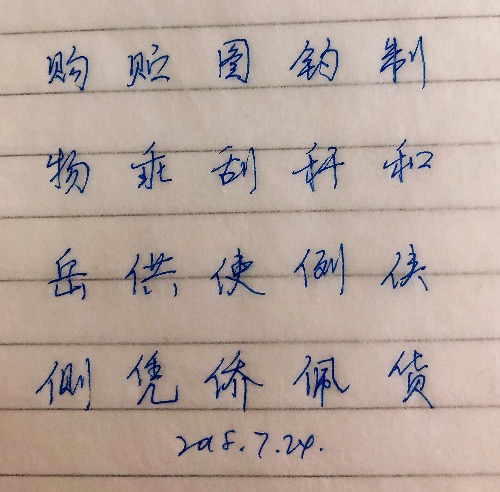 购 贮 图 钓 制
物 乖 刮 秆 和
岳 供 使 例 侠
侧 凭 侨 佩 货
2018.7.24.